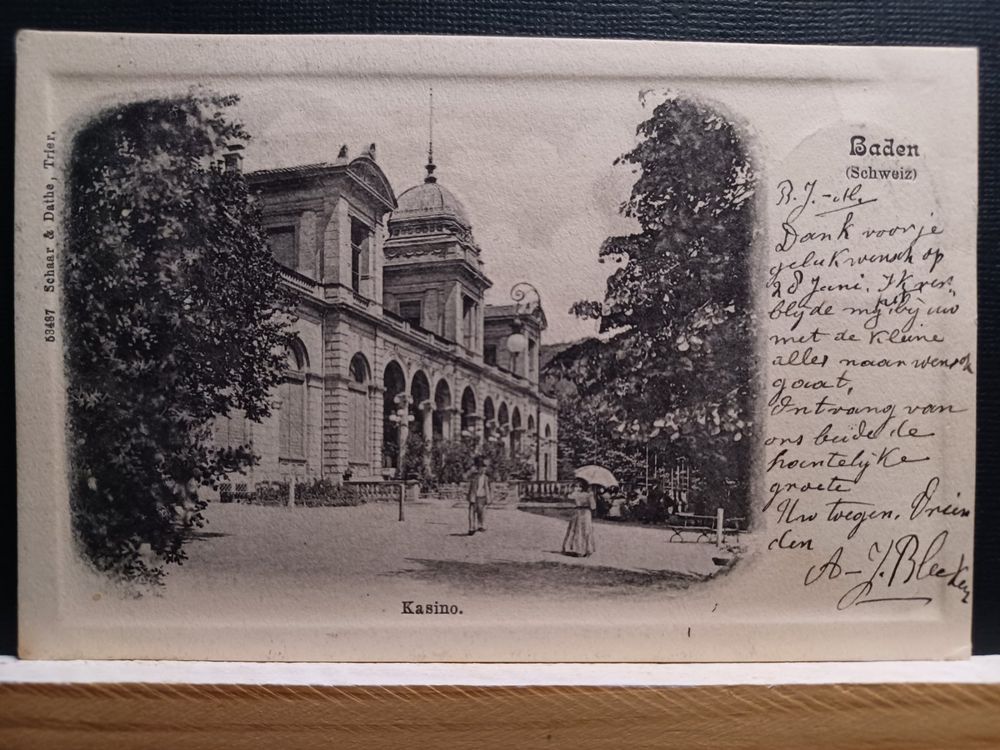 53487 Schaar & Dathe, Trier.
Baden
(Schweiz)
B. J. - M.
Dank voor je
gelukwensch op
28 Juni. Ik ver-
blyde my, bij uw
met de kleine
alles naar wensch
gaat,
Ontvang van
ons beide de
hartelijke
groete
Uw toegen. Vrien
den
A-J. Bleeker
Kasino.